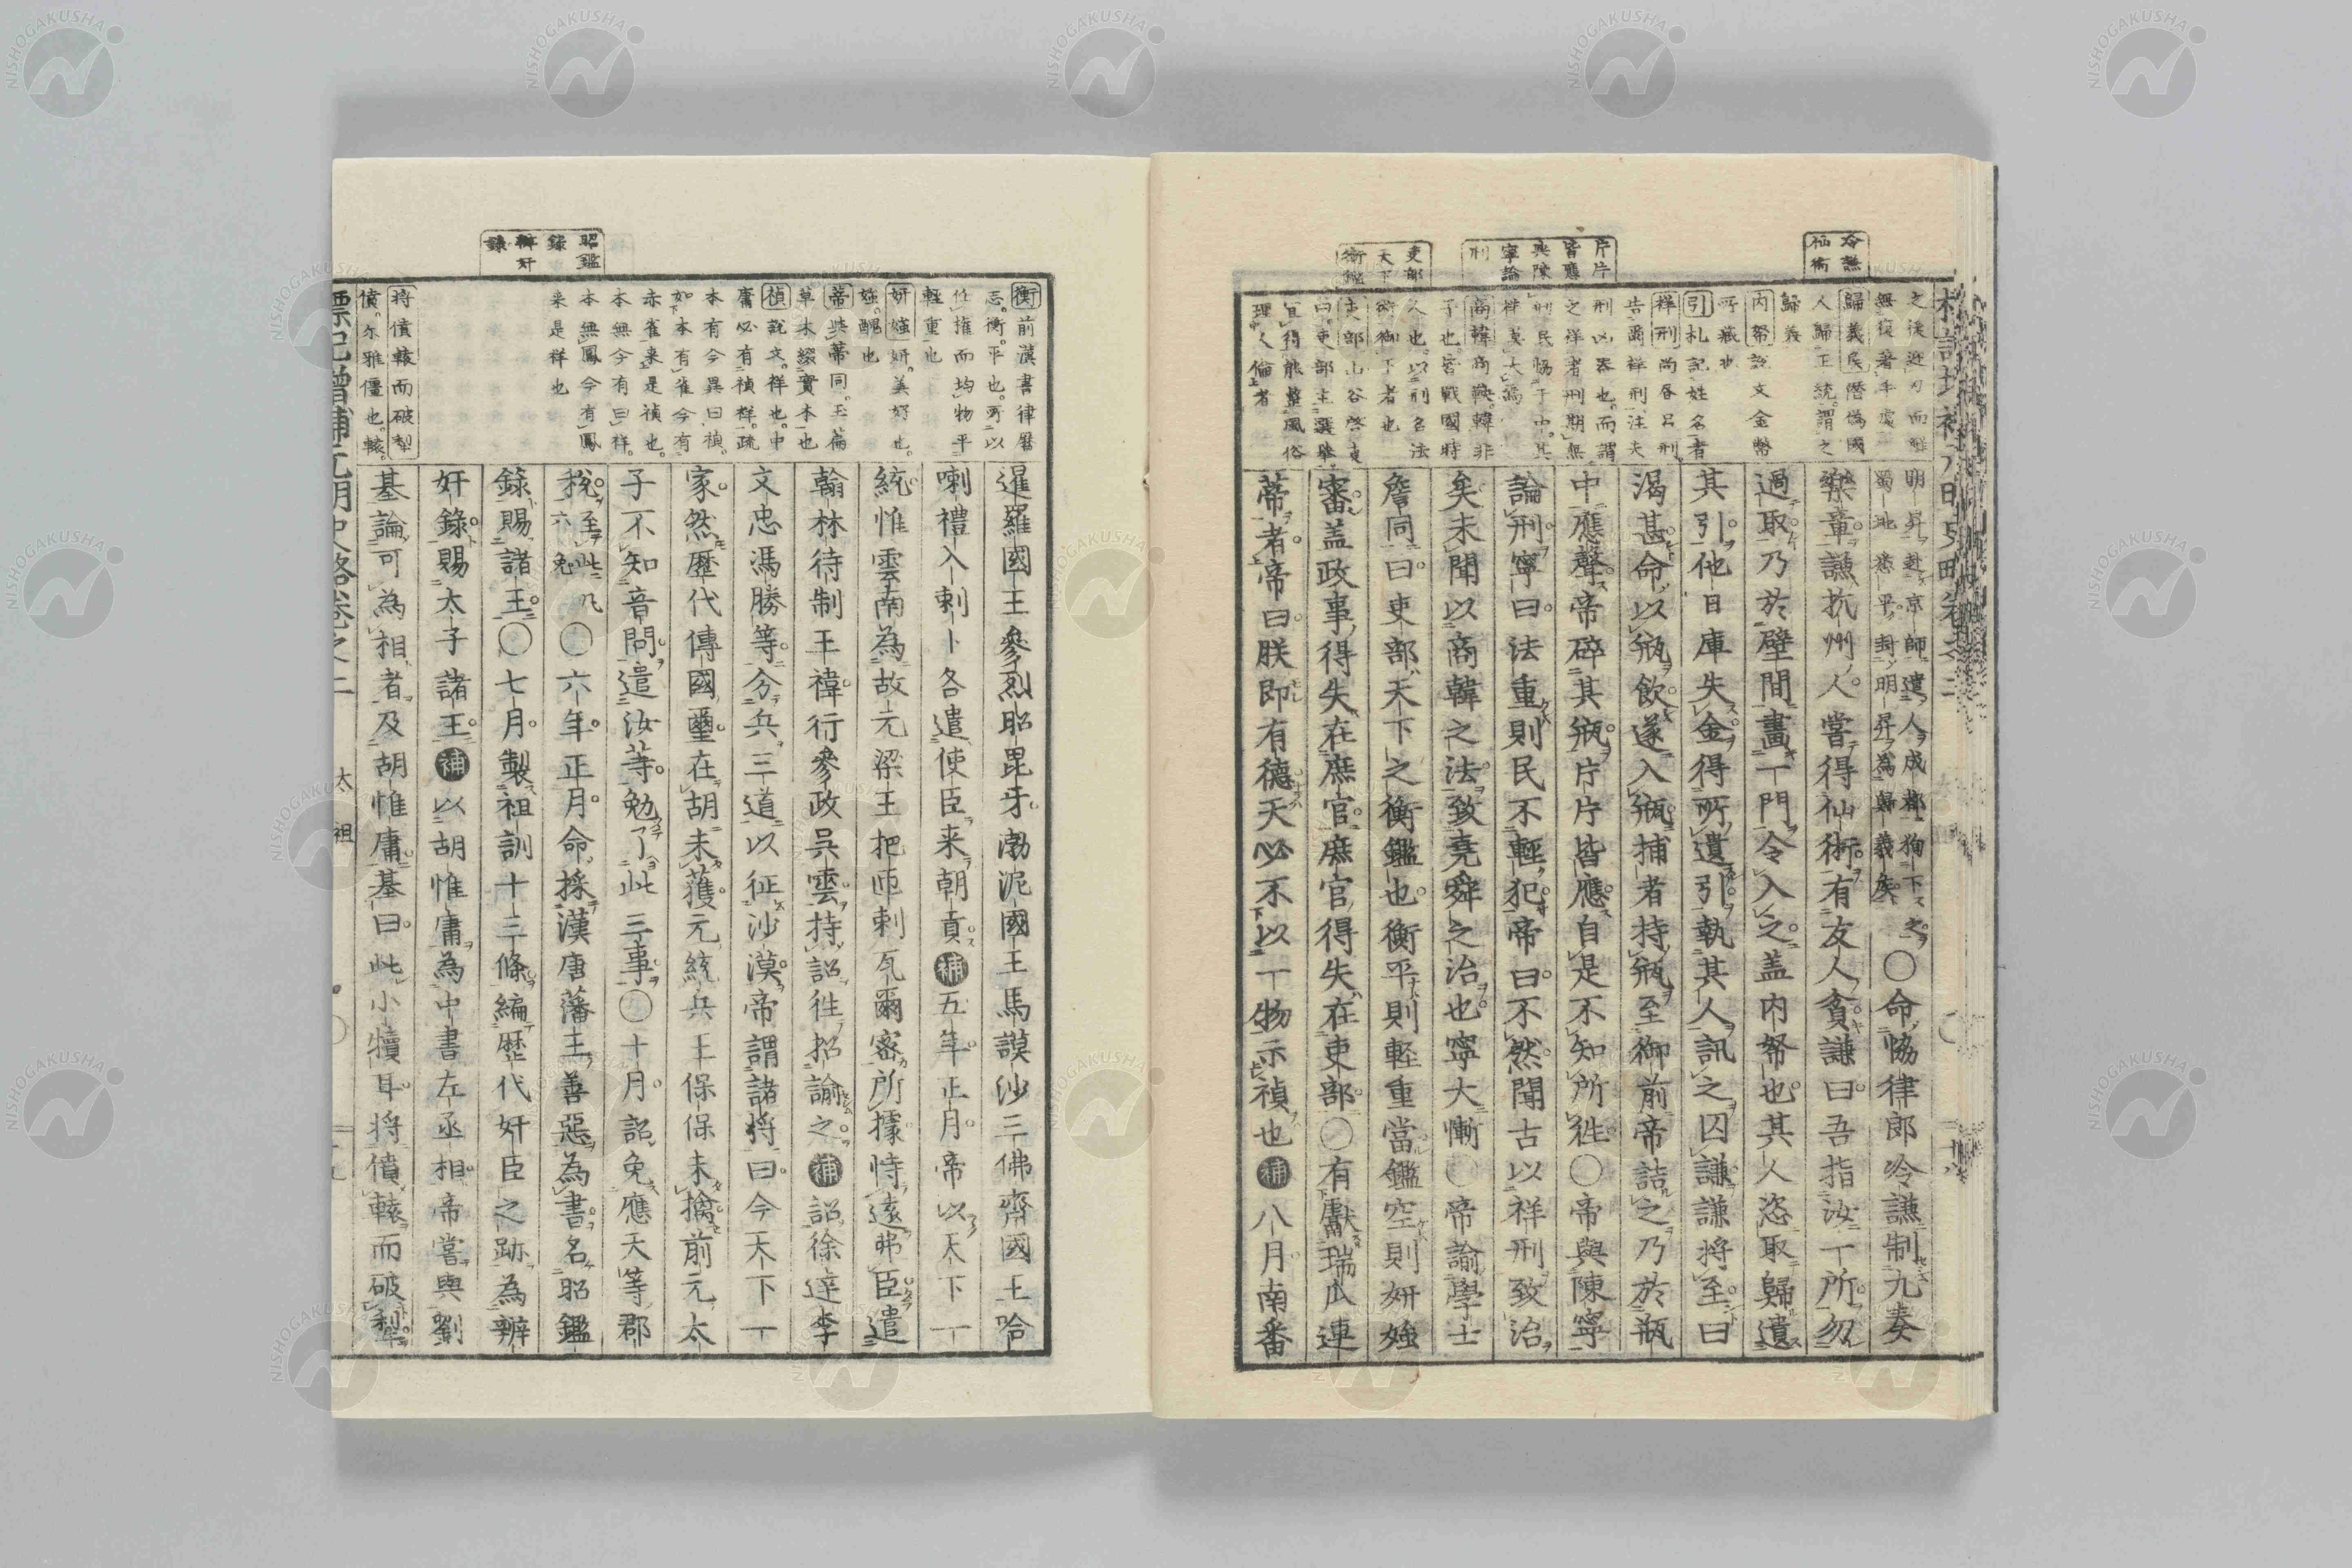 冷謙
仙術
片片
皆應
與陳
寧論
刑
吏部
天下
衡鑑
無復著手處
歸義民僣偽國
人歸正統謂之
歸義
内帑説文金幣
所藏也
引札記姓名者
祥刑尚書呂刑
告爾祥刑注夫
刑凶器也而謂
之祥者刑期無
刑民恊于中其
祥莫大焉
商韓商鞅韓非
子也皆戰國時
人也以刑名法
術御下者也
吏部山谷啓吏
曰吏部主選舉
宜得能整風俗
理人倫者
明昇赴京師遣人成都狥下之
蜀地悉平封明昇為歸義矦
〇命恊律郎冷謙制九奏
樂章謙抗州人嘗得仙術有友人貧謙曰吾指汝一所勿
過取乃於壁間畫一門令入之盖内帑也其人恣取歸遺
其引他日庫失金得所遺引執其人訊之囚謙謙將至曰
渴甚命以瓶飲遂入瓶捕者持瓶至御前帝詰之乃於瓶
中應聲帝碎其瓶片片皆應自是不知所徃〇帝與陳寧
論刑寧曰法重則民不輕犯帝曰不然聞古以祥刑致治
矣未聞以商韓之法致堯舜之治也寧大慚〇帝諭學士
詹同曰吏部天下之衡鑑也衡平則軽重當鑑空則妍媸
審盖政事得失在庶官庶官得失在吏部〇有獻瑞瓜連
蒂者帝曰朕即有德天必不以一物示禎也補八月南番
昭鑑
録
辨奸
録
衡前漢書律曆
志衡平也所以
任權而均物平
輕重也
妍媸妍美好也
媸醜也
蒂與蔕同玉篇
草木綴實本也
禎説文祥也中
庸必有禎祥疏
本有今異曰禎
如本有雀今有
赤雀来是禎也
本無今有曰祥
本無鳳今有鳳
来是祥也
將僨轅而破犁
僨尓雅僵也轅
暹羅國王參烈昭毘牙渤泥國王馬謨沙三佛齊國王哈
喇禮入剌卜各遣使臣来朝貢補五年正月帝以天下一
統惟雲南為故元梁王把匝剌瓦爾密所據恃遠弗臣遣
翰林待制王禕行參政吳雲持詔徃招諭之補詔徐達李
文忠馮勝等分兵三道以征沙漠帝謂諸將曰今天下一
家然歷代傳國璽在胡未獲元統兵王保保未擒前元太
子不知音問遣汝等勉了此三事〇十月詔免應天等郡
税至此凡六免〇六年正月命採漢唐藩王善惡為書名昭鑑
録賜諸王〇七月製祖訓十三條編歴代奸臣之跡為辨
奸錄賜太子諸王補以胡惟庸為中書左丞相帝嘗與劉
基論可為相者及胡惟庸基曰此小犢耳將僨轅而破犁
標記增補元明史略卷之二
太祖